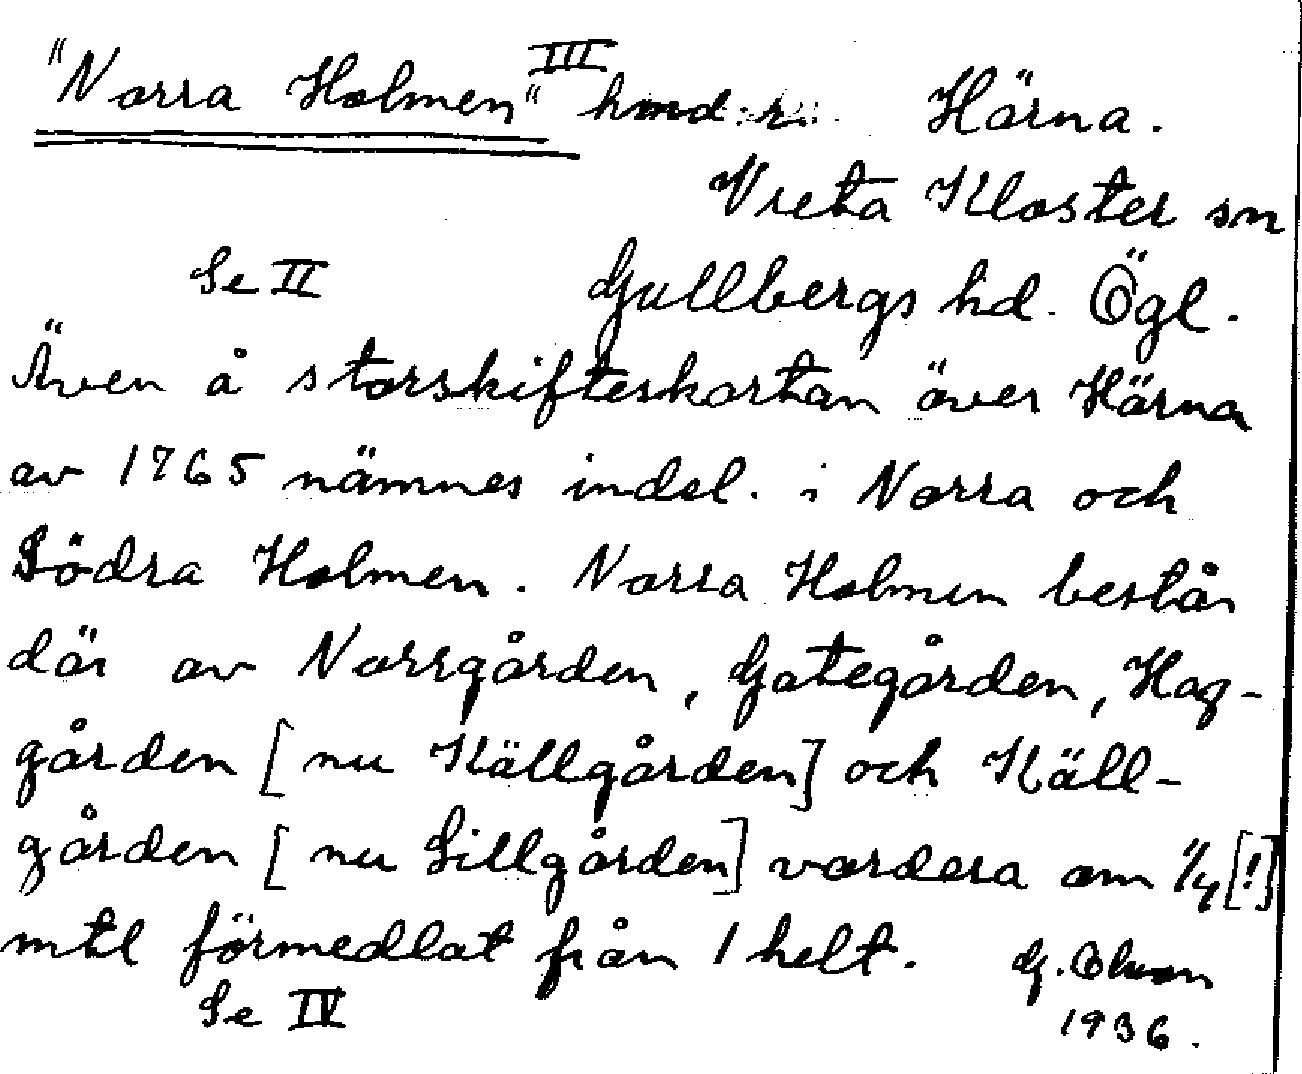 "Norra Holmen" III hmd:r. Härna.
Vreta Kloster sn
Se II Gullbergs hd. Ögl.
Även å storskifteskartan över Härna
av 1765 nämnes indel. i Norra och
Södra Holmen. Norra Holmen består
där av Norrgården, Gategården, Hag-
gården [nu Källgården] och Käll-
gården [nu Lillgården] vardera om 1/4 [!]
mtl förmedlat från 1 helt. G. Olson
Se IV 1936.